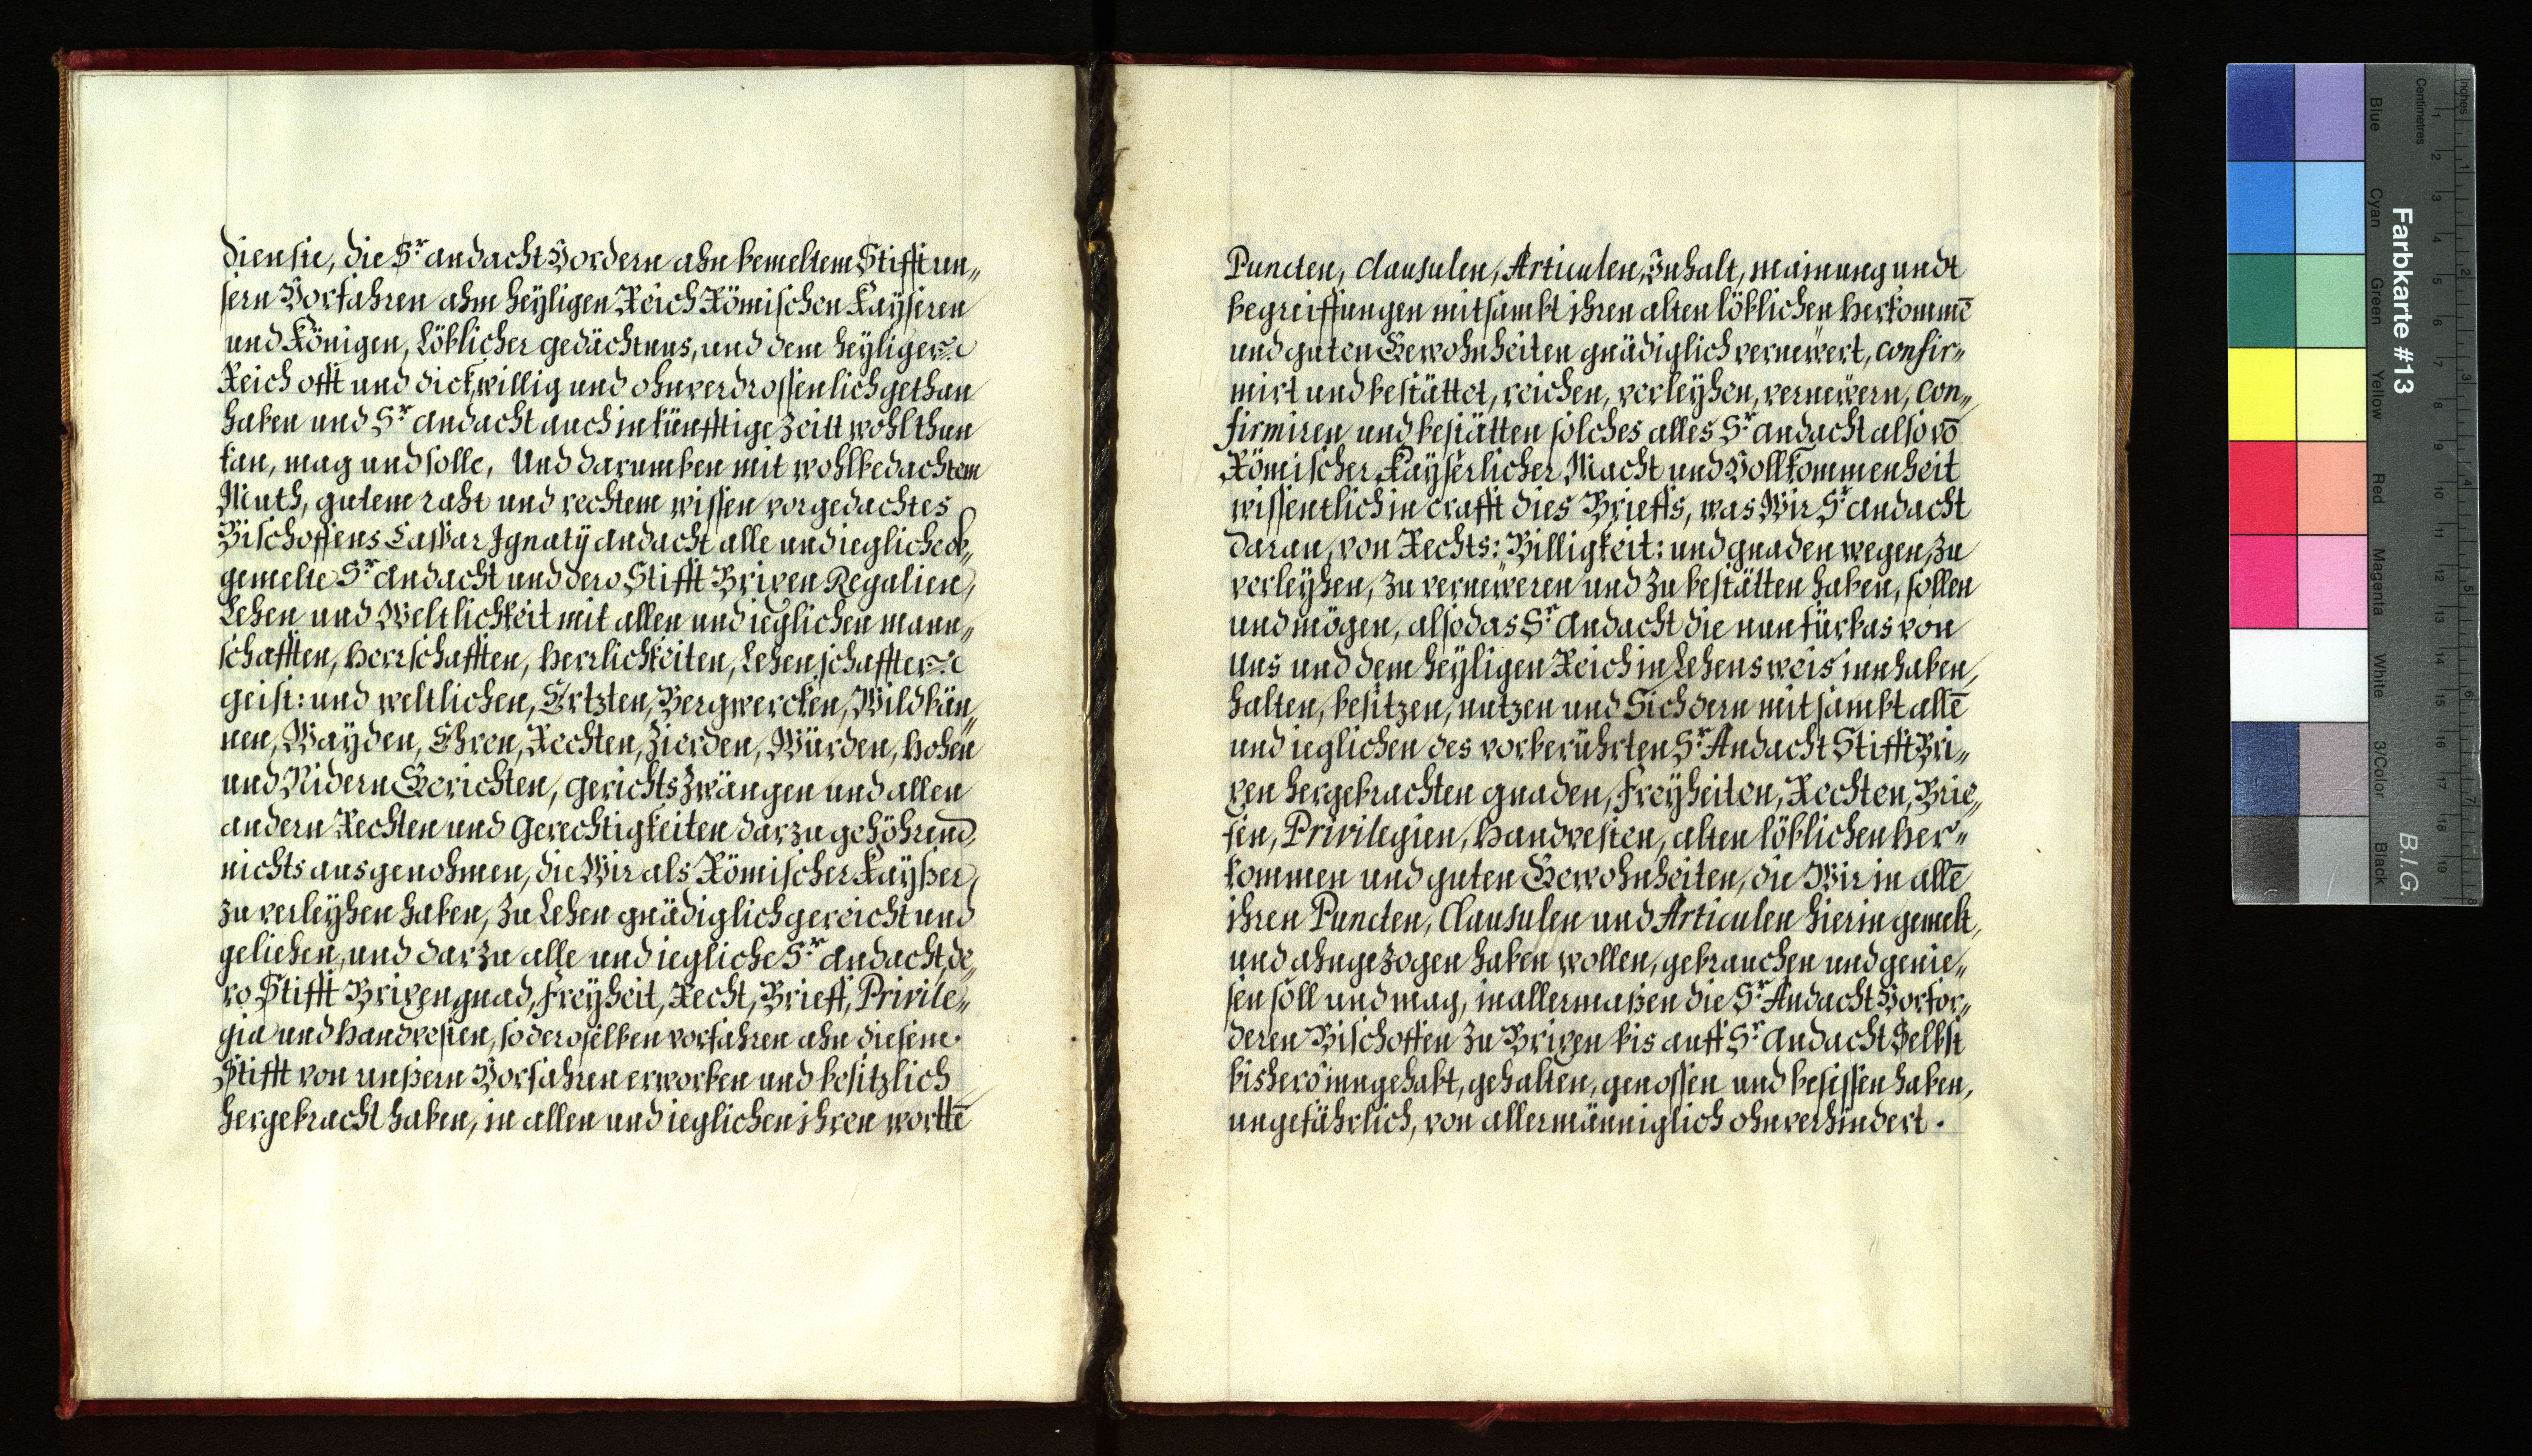 dienste, die Sr andacht Vordern ahn bemeltem Stifft un„
sern Vorfahren ahm heyligen Reich Römischen Kayseren
und Königen, löblicher gedächtnus, und dem heyligen
Reich offt und dick willig und ohnverdrossenlich gethan
haben und Sr andacht auch in künfftige Zeitt wohl thun
kan, mag und solle, Und darumben mit wohlbedachtem
Muth, gutem raht und rechtem wissen vorgedachtes
Bischoffens Caspar Ignatÿ andacht alle und iegliche ob„
gemelte Sr andacht und dero Stifft Brixen Regalien,
Lehen und Weltlichkeit mit allen und ieglichen mann„
schafften, herrschafften, herrlichkeiten, Lehenschafften
geist: und weltlichen, Ertzten, Bergwercken, Wildbän„
nen, Wayden, Ehren, Rechten, Zierden, Würden, hohen
und Nidern Gerichten, gerichts Zwängen und allen
andern Rechten und Gerechtigkeiten darzu gehöhrend,
nichts ausgenohmen, die Wir als Römischer Kayßer,
zu verleyhen haben, zu Lehen gnädiglich gereicht und
geliehen, und darzu alle und iegliche Sr andacht, de„
ro Stifft Brixen gnad, Freyheit, Recht, Brieff, Privile„
gia und handvesten, so deroselben vorfahren ahn diesem
Stifft von unßern Vorfahren erworben und besitzlich
hergebracht haben, in allen und ieglichen ihren wortē
Puncten, Clausulen, Articulen, Inhalt, mainung undt
begreiffungen mitsambt ihren alten löblichen herkommē
und guten Gewohnheiten gnädiglich vernewert, confir„
mirt und bestättet, reichen, verleyhen, vernewern, con„
firmiren und bestätten solches alles Sr andacht also vō
Römischer Kayserlicher Macht und Vollkommenheit
wissentlich in crafft dies Brieffs, was Wir Sr andacht
daran, von Rechts: Billigkeit: und gnaden wegen, zu
verleyhen, zu verneweren und zu bestätten haben, sollen
und mögen, also das Sr andacht die nun fürbas von
uns und dem heyligen Reich in Lehens weis innhaben,
halten, besitzen, nutzen und Sich dern mitsambt allē
und ieglichen des vorberührten Sr Andacht Stifft Bri„
xen hergebrachten gnaden, Freyheiten, Rechten, Brie„
fen, Privilegien, handvesten, alten löblichen her„
kommen und guten Gewohnheiten, die Wir in allē
ihren Puncten, Clausulen und Articulen hierin gemelt,
und ahngezogen haben wollen, gebrauchen und genie„
sen soll und mag, in allermaßen die Sr Andacht Vorfor„
deren Bischoffen zu Brixen bis auff Sr andacht Selbst
bishero inngehabt, gehalten, genossen und besessen haben,
ungefährlich, von allermänniglich ohnverhindert.
Farbkarte #13
B.I.G.
Inches
Centimetres
Blue
Cyan
Green
Yellow
Red
Magenta
White
3/Color
Black